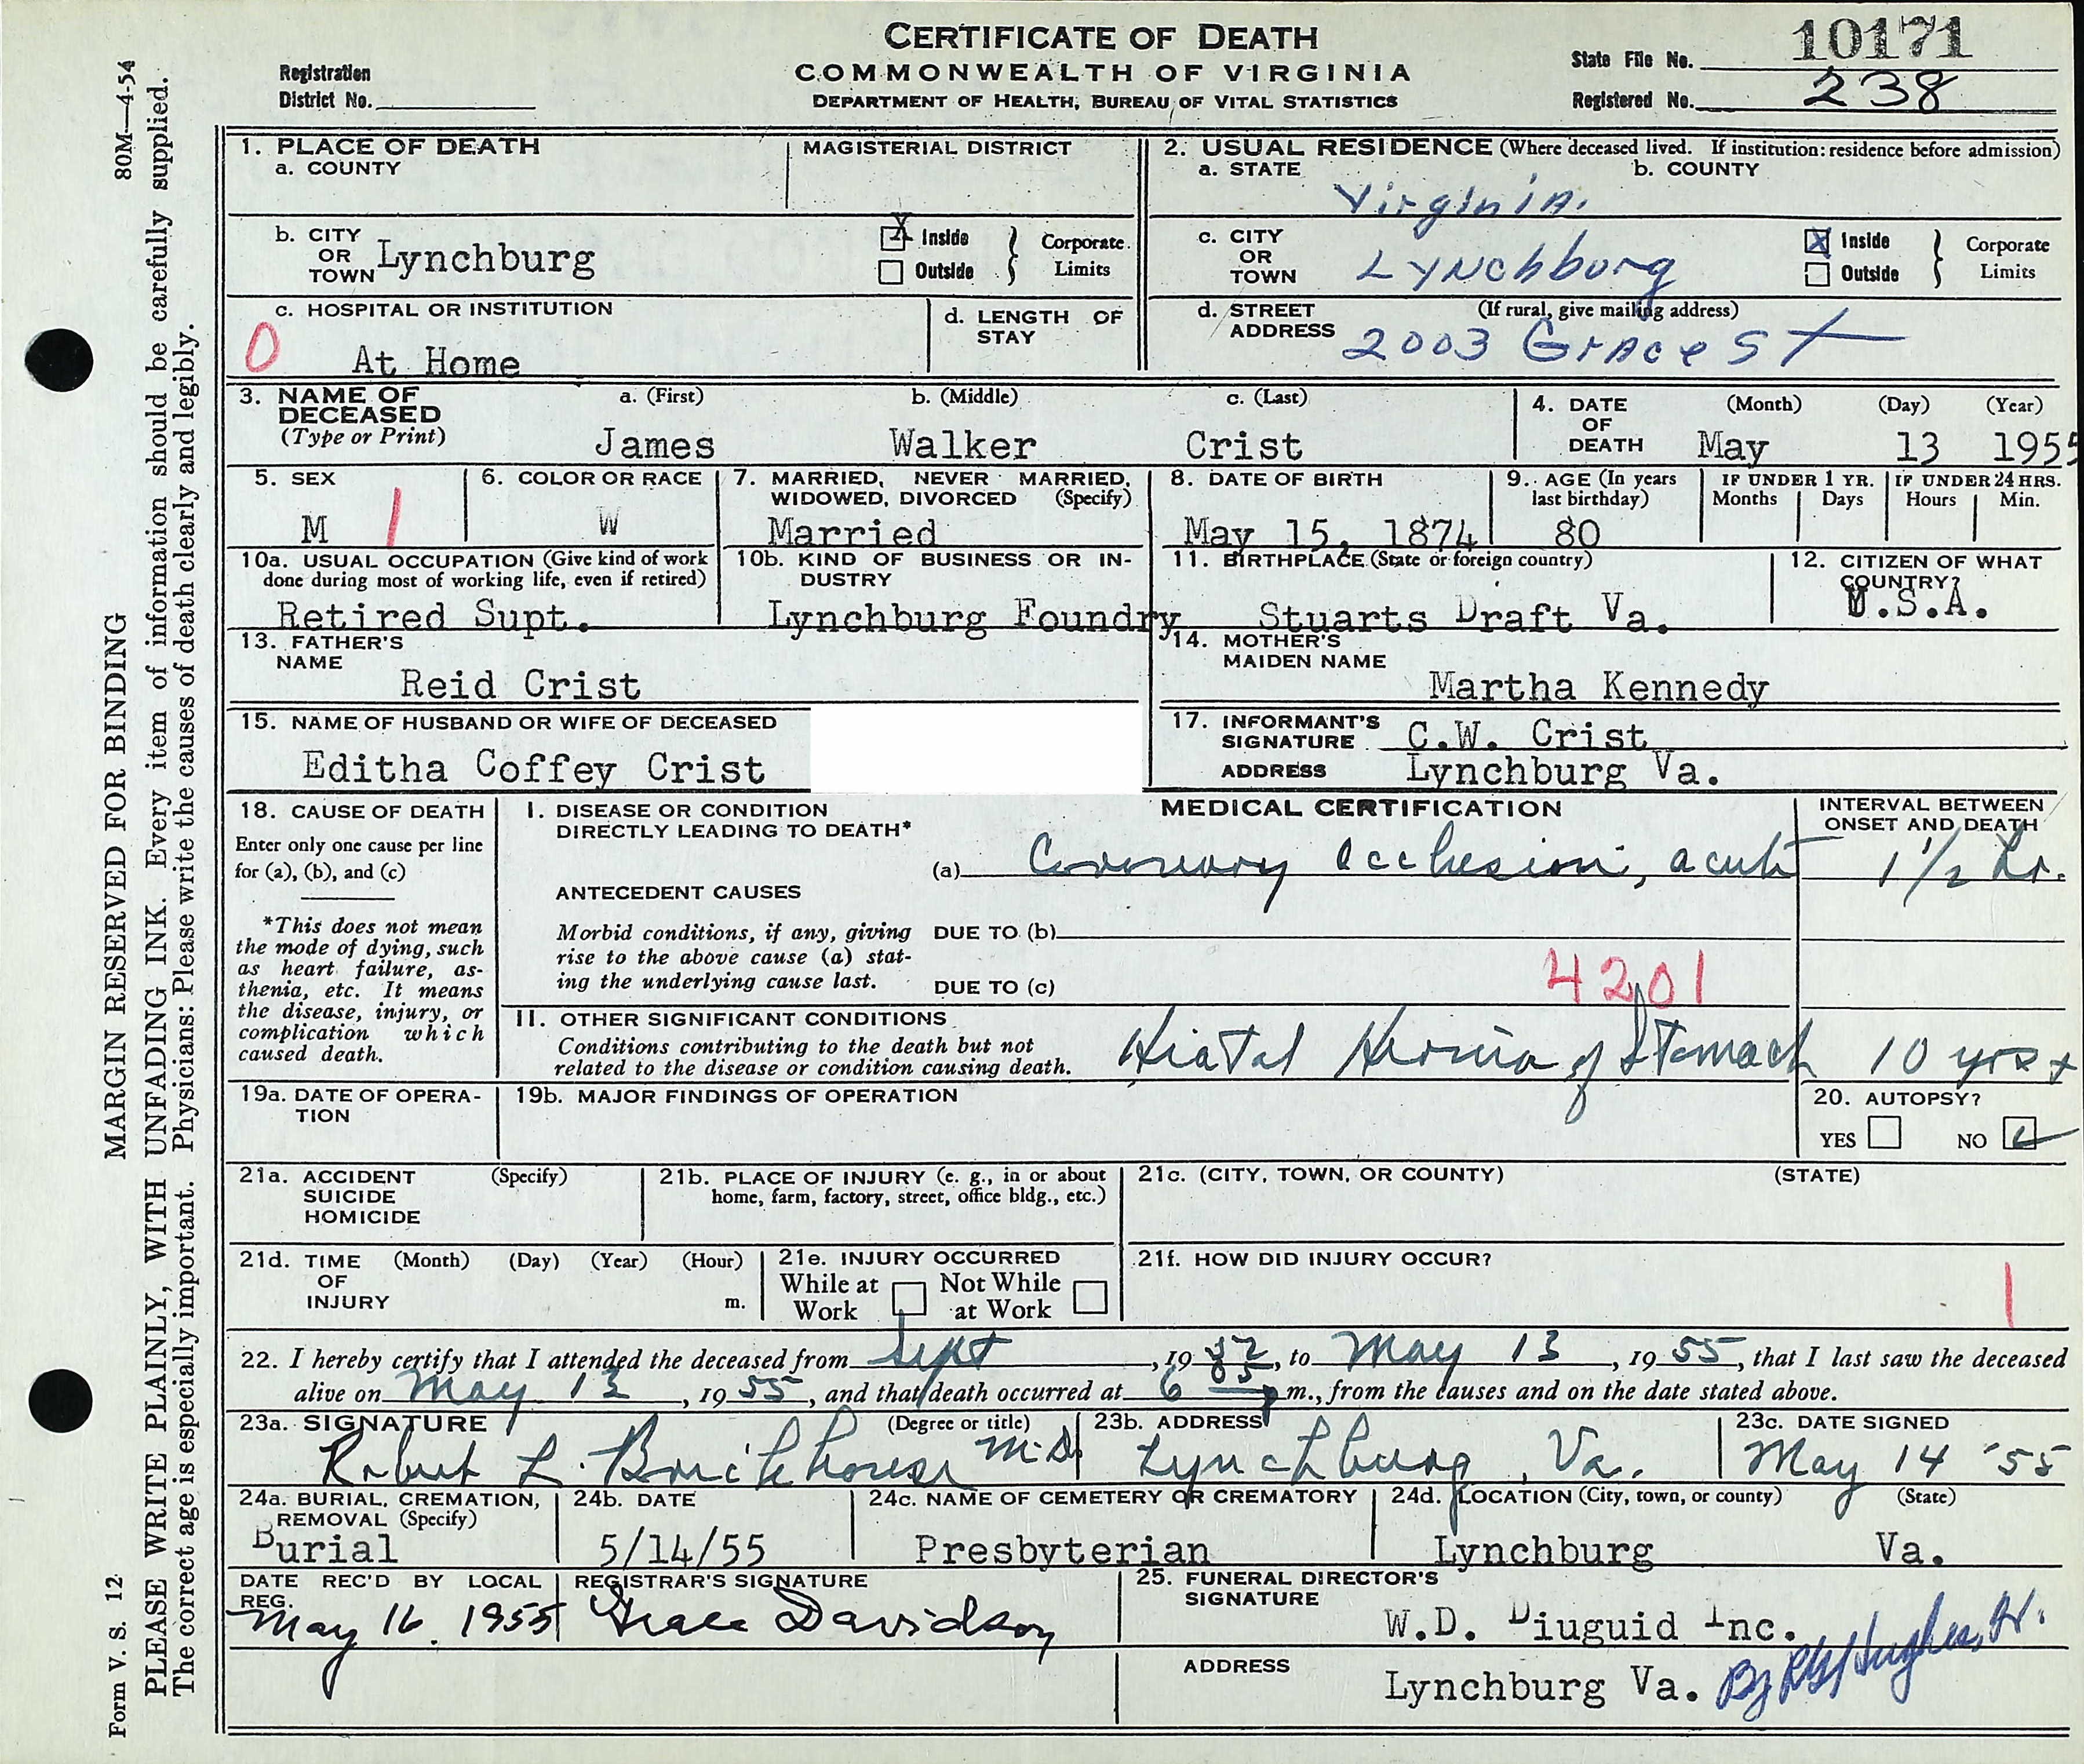 CERTIFICATE OF DEATH
COMMONWEALTH OF VIRGINIA
DEPARTMENT OF HEALTH, BUREAU OF VITAL STATISTICS
Registration
District No.
State File No. 10171
Registered No. 238
80M—4-54
MARGIN RESERVED FOR BINDING
PLEASE WRITE PLAINLY, WITH UNFADING INK. Every item of information should be carefully supplied.
The correct age is especially important. Physicians: Please write the causes of death clearly and legibly.
Form V. S. 12
1. PLACE OF DEATH
a. COUNTY
MAGISTERIAL DISTRICT
2. USUAL RESIDENCE (Where deceased lived. If institution: residence before admission)
a. STATE
b. COUNTY
Virginia.
b. CITY OR TOWN Lynchburg
X Inside
Outside
Corporate Limits
c. CITY OR TOWN Lynchburg
X Inside
Outside
Corporate Limits
c. HOSPITAL OR INSTITUTION
0 At Home
d. LENGTH OF STAY
d. STREET ADDRESS (If rural, give mailing address)
2003 Grace St
3. NAME OF DECEASED
(Type or Print)
a. (First) b. (Middle) c. (Last)
James Walker Crist
4. DATE OF DEATH
(Month) (Day) (Year)
May 13 1955
5. SEX
M 1
6. COLOR OR RACE
W
7. MARRIED, NEVER MARRIED, WIDOWED, DIVORCED (Specify)
Married
8. DATE OF BIRTH
May 15, 1874
9. AGE (In years last birthday)
80
IF UNDER 1 YR.
Months Days
IF UNDER 24 HRS.
Hours Min.
10a. USUAL OCCUPATION (Give kind of work done during most of working life, even if retired)
Retired Supt.
10b. KIND OF BUSINESS OR INDUSTRY
Lynchburg Foundry
11. BIRTHPLACE (State or foreign country)
Stuarts Draft Va.
12. CITIZEN OF WHAT COUNTRY?
U.S.A.
13. FATHER'S NAME
Reid Crist
14. MOTHER'S MAIDEN NAME
Martha Kennedy
15. NAME OF HUSBAND OR WIFE OF DECEASED
Editha Coffey Crist
17. INFORMANT'S SIGNATURE C.W. Crist
ADDRESS Lynchburg Va.
18. CAUSE OF DEATH
Enter only one cause per line for (a), (b), and (c)
*This does not mean the mode of dying, such as heart failure, asthenia, etc. It means the disease, injury, or complication which caused death.
MEDICAL CERTIFICATION
INTERVAL BETWEEN ONSET AND DEATH
I. DISEASE OR CONDITION DIRECTLY LEADING TO DEATH*
(a) Coronary occlusion, acute 1 1/2 hr.
ANTECEDENT CAUSES
Morbid conditions, if any, giving rise to the above cause (a) stating the underlying cause last.
DUE TO (b)
DUE TO (c)
4201
II. OTHER SIGNIFICANT CONDITIONS
Conditions contributing to the death but not related to the disease or condition causing death.
Hiatal Hernia of Stomach 10 yrs +
19a. DATE OF OPERATION
19b. MAJOR FINDINGS OF OPERATION
20. AUTOPSY?
YES NO
21a. ACCIDENT SUICIDE HOMICIDE (Specify)
21b. PLACE OF INJURY (e. g., in or about home, farm, factory, street, office bldg., etc.)
21c. (CITY, TOWN, OR COUNTY) (STATE)
21d. TIME OF INJURY (Month) (Day) (Year) (Hour) m.
21e. INJURY OCCURRED
While at Work Not While at Work
21f. HOW DID INJURY OCCUR?
1
22. I hereby certify that I attended the deceased from Sept, 19 52, to May 13, 19 55, that I last saw the deceased
alive on May 13, 19 55, and that death occurred at 6 05 p m., from the causes and on the date stated above.
23a. SIGNATURE (Degree or title)
Robert L. Brickhouse M.D.
23b. ADDRESS
Lynchburg, Va.
23c. DATE SIGNED
May 14 '55
24a. BURIAL, CREMATION, REMOVAL (Specify)
Burial
24b. DATE
5/14/55
24c. NAME OF CEMETERY OR CREMATORY
Presbyterian
24d. LOCATION (City, town, or county) (State)
Lynchburg Va.
DATE REC'D BY LOCAL REG.
May 16. 1955
REGISTRAR'S SIGNATURE
Grace Davidson
25. FUNERAL DIRECTOR'S SIGNATURE
W.D. Diuguid Inc.
ADDRESS
Lynchburg Va. By Hughes, Jr.